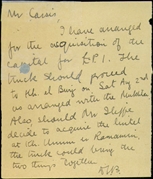 Mr Cassis,
I have arranged
for the acquisition of the
capital for EP I. The
truck should proceed
to Kh. el Burj on Sat. Aug 2nd
as arranged with the Mukhtar.
Also should Mr Iliffe
decide to acquire the lintel
at the Umm in Ramamin,
the truck could bring the
two things together.